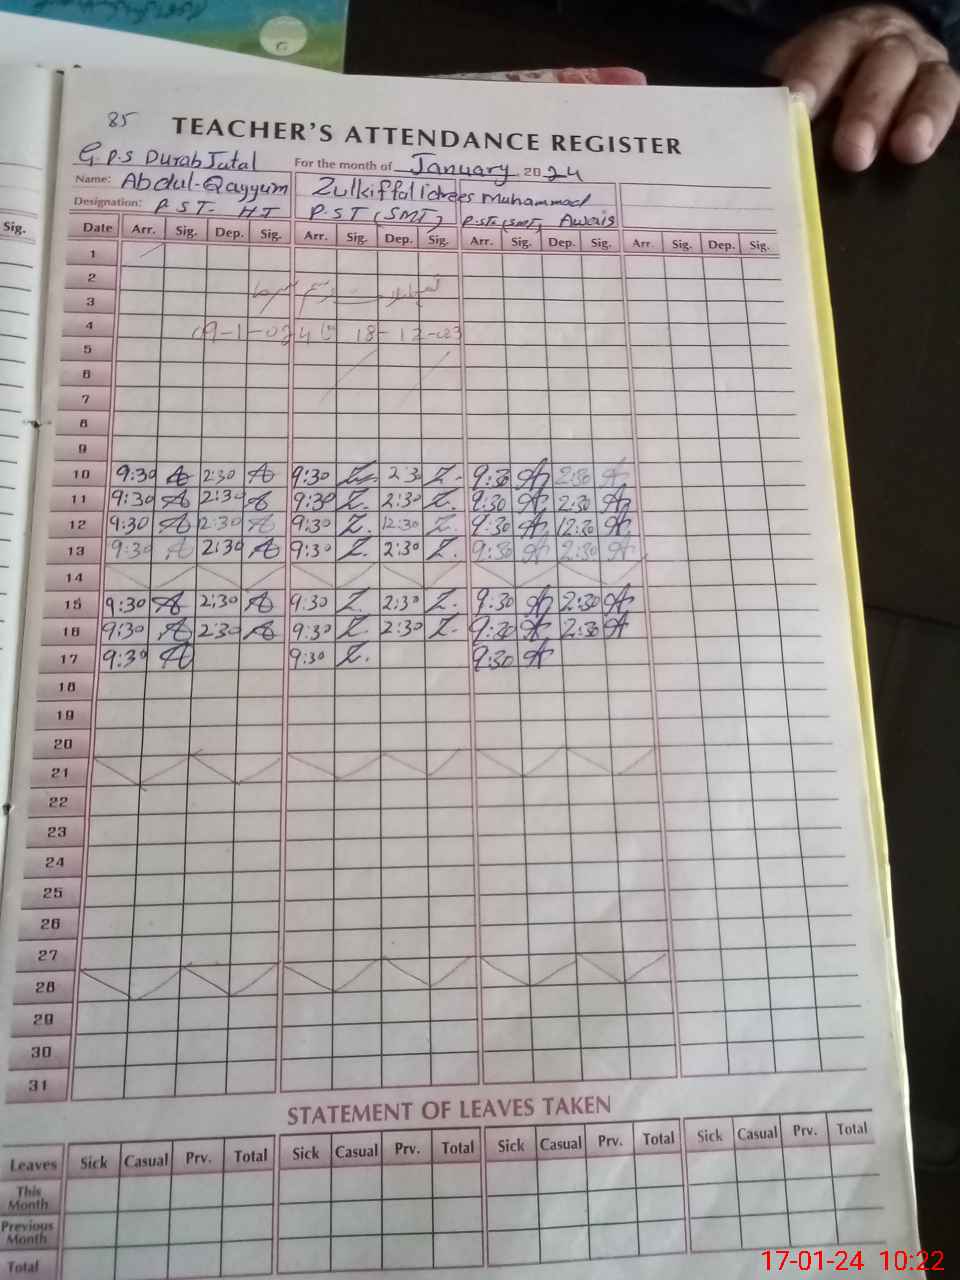 85
TEACHER'S ATTENDANCE REGISTER
G.P.S Durab Jatal For the month of January 2024
Name: Abdul-Qayyum Zulkiffal idrees Muhammad
Designation: P S T- H T P.S T (SMT) P.ST. (SMT) Awais
Sig.
Date Arr. Sig. Dep. Sig. Arr. Sig. Dep. Sig. Arr. Sig. Dep. Sig. Arr. Sig. Dep. Sig.
1
2
3
4 09-1-024 18-12-023
5
6
7
8
9
10 9:30 2:30 9:30 Z 2:30 Z. 9:30 2:30
11 9:30 2:30 9:30 Z. 2:30 Z. 9:30 2:30
12 9:30 12:30 9:30 Z. 12:30 Z. 9:30 12:30
13 9:30 2:30 9:30 Z. 2:30 Z. 9:30 2:30
14
15 9:30 2:30 9:30 Z. 2:30 Z. 9:30 2:30
16 9:30 2:30 9:30 Z. 2:30 Z. 9:30 2:30
17 9:30 9:30 Z. 9:30
18
19
20
21
22
23
24
25
26
27
28
29
30
31
STATEMENT OF LEAVES TAKEN
Leaves Sick Casual Prv. Total Sick Casual Prv. Total Sick Casual Prv. Total Sick Casual Prv. Total
This Month
Previous Month
Total
17-01-24 10:22